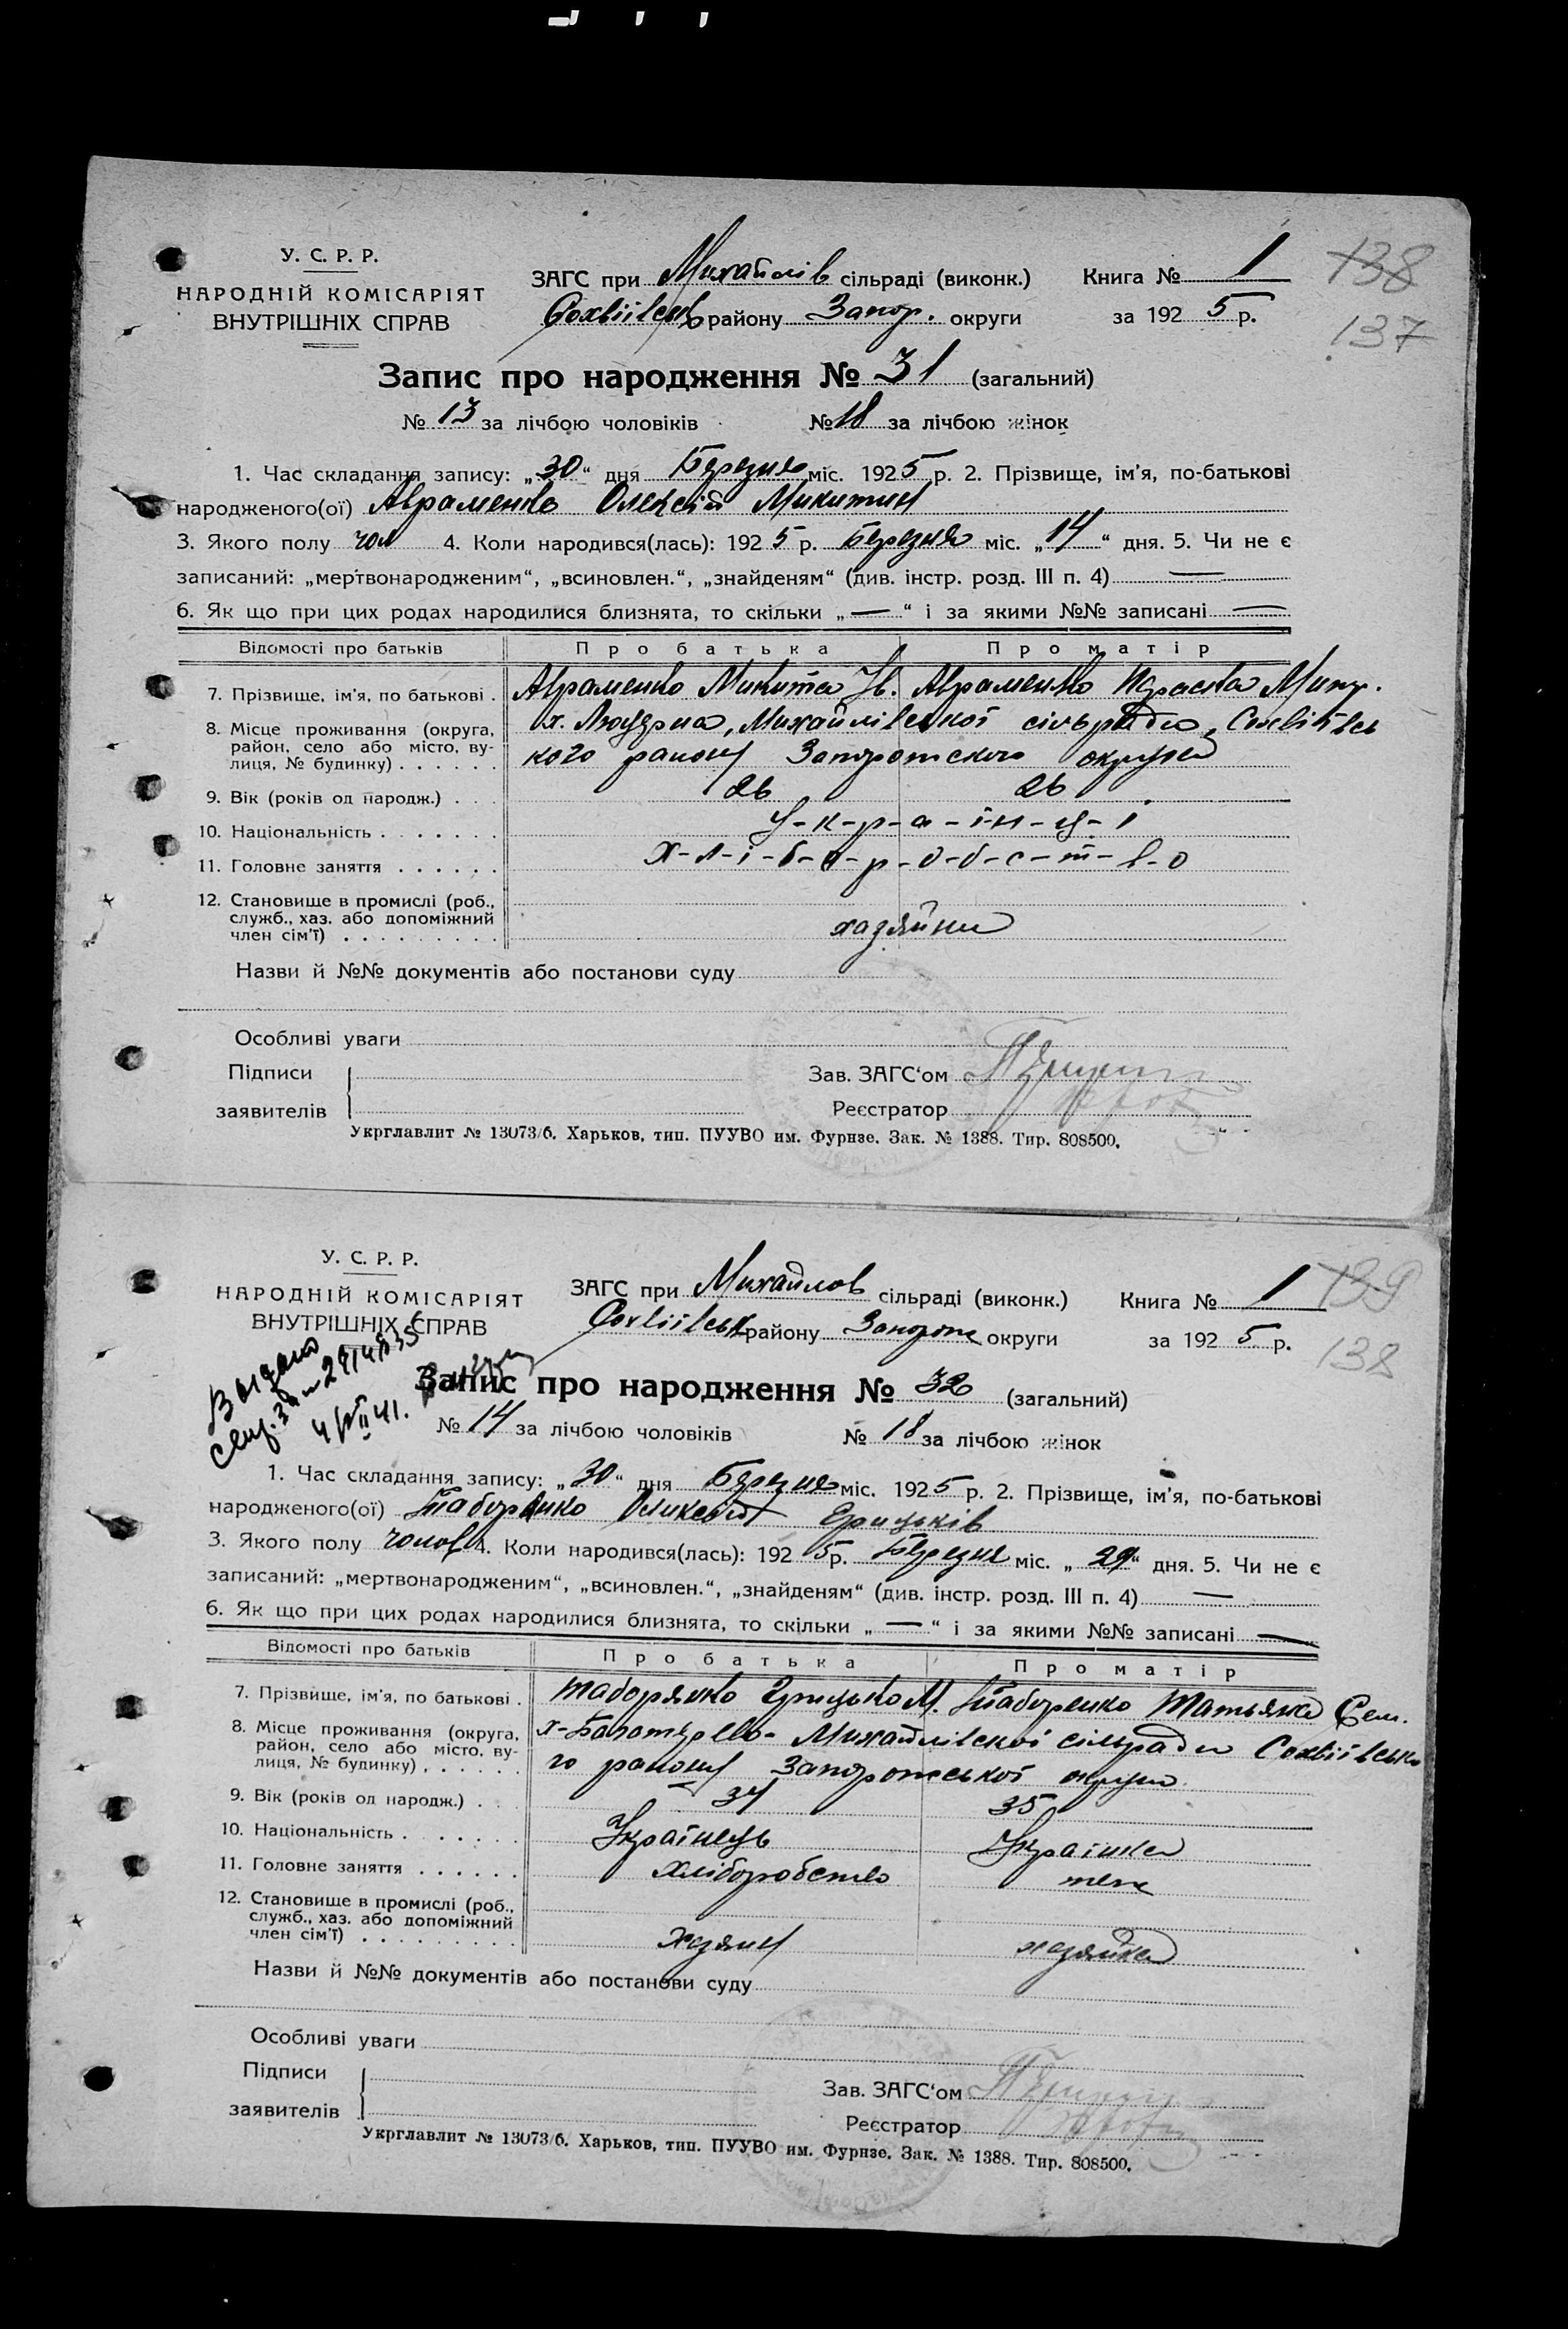 У. С. Р. Р.
НАРОДНІЙ КОМІСАРІЯТ
ВНУТРІШНІХ СПРАВ
ЗАГС при Михайлів сільраді (виконк.)
Софіївськ району Запор. округи
Книга № 1
за 1925 р.
138
137
Запис про народження № 31 (загальний)
№ 13 за лічбою чоловіків № 18 за лічбою жінок
1. Час складання запису: „30“ дня Березня міс. 1925 р. 2. Прізвище, ім’я, по-батькові
народженого(ої) Авраменко Олексій Микитин
3. Якого полу чол 4. Коли народився(лась): 1925 р. Березня міс. „14“ дня. 5. Чи не є
записаний: „мертвонародженим“, „всиновлен.“, „знайденям“ (див. інстр. розд. III п. 4) —
6. Як що при цих родах народилися близнята, то скільки „—“ і за якими №№ записані —
Відомості про батьків Про батька Про матір
7. Прізвище, ім’я, по батькові . Авраменко Микита Ів. Авраменко
8. Місце проживання (округа, район, село або місто, вулиця, № будинку) . . . . . . х. Михайлівської сільради,
кого району округи
9. Вік (років од народж.) . . . 26 26
10. Національність . . . . . . . У-к-р-а-їн-ц-і
11. Головне заняття . . . . . . Х-л-і-б-о-р-о-б-с-т-в-о
12. Становище в промислі (роб., служб., хаз. або допоміжний член сім’ї) . . . . . . . . . хазяйни
Назви й №№ документів або постанови суду
Особливі уваги
Підписи
заявителів
Зав. ЗАГС‘ом
Реєстратор
Укрглавлит № 13073/б. Харьков, тип. ПУУВО им. Фрунзе. Зак. № 1388. Тир. 808500.
У. С. Р. Р.
НАРОДНІЙ КОМІСАРІЯТ
ВНУТРІШНІХ СПРАВ
ЗАГС при Михайлов сільраді (виконк.)
району Запорож округи
Книга № 1
за 1925 р.
139
138
Выдано
Запис про народження № 32 (загальний)
№ 14 за лічбою чоловіків № 18 за лічбою жінок
1. Час складання запису: „30“ дня Березня міс. 1925 р. 2. Прізвище, ім’я, по-батькові
народженого(ої) Таборенко Грицьків
3. Якого полу чолов 4. Коли народився(лась): 1925 р. Березня міс. „29“ дня. 5. Чи не є
записаний: „мертвонародженим“, „всиновлен.“, „знайденям“ (див. інстр. розд. III п. 4) —
6. Як що при цих родах народилися близнята, то скільки „—“ і за якими №№ записані —
Відомості про батьків Про батька Про матір
7. Прізвище, ім’я, по батькові . Таборянко Грицько М. Таборенко Татьяна Сем.
8. Місце проживання (округа, район, село або місто, вулиця, № будинку) . . . . . . Михайлівскої сільради
го району округи
9. Вік (років од народж.) . . . 34 35
10. Національність . . . . . . . Українець Українка
11. Головне заняття . . . . . . хліборобство теж
12. Становище в промислі (роб., служб., хаз. або допоміжний член сім’ї) . . . . . . . . . хазяин хазяйка
Назви й №№ документів або постанови суду
Особливі уваги
Підписи
заявителів
Зав. ЗАГС‘ом
Реєстратор
Укрглавлит № 13073/б. Харьков, тип. ПУУВО им. Фрунзе. Зак. № 1388. Тир. 808500.